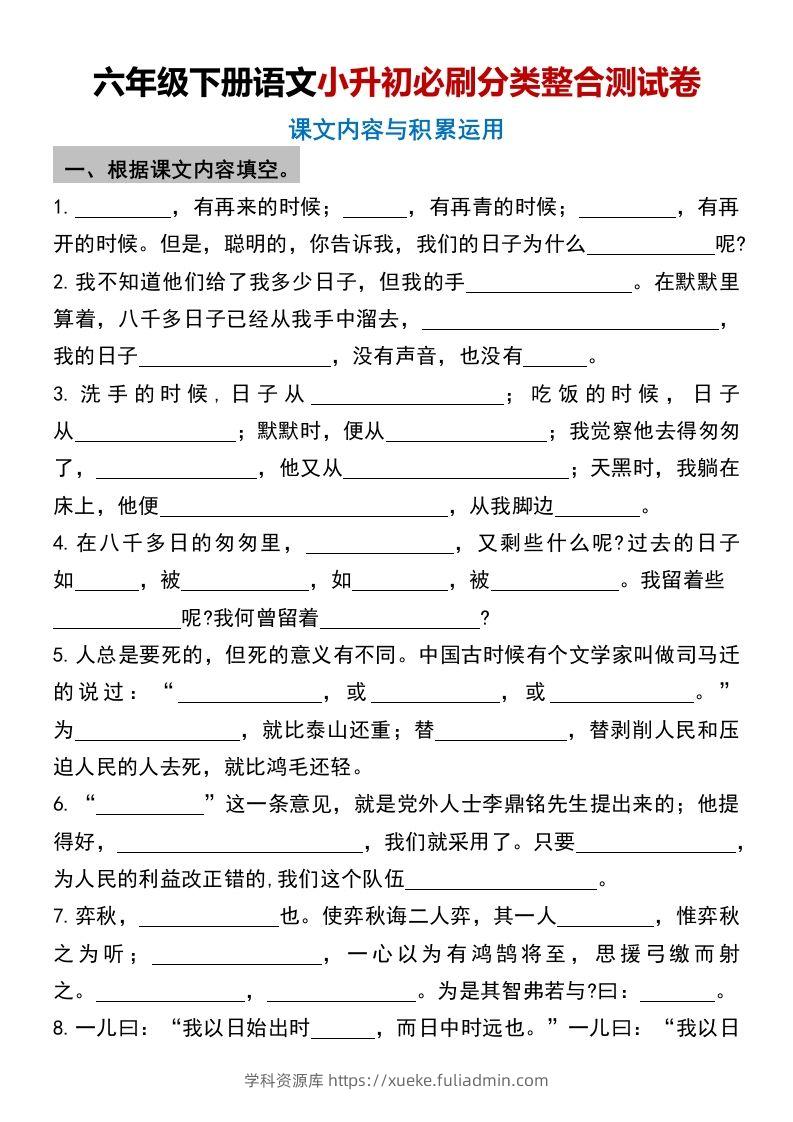 六年级下册语文小升初必刷分类整合测试卷
课文内容与积累运用
一、根据课文内容填空。
1. _________，有再来的时候；______，有再青的时候；_________，有再
开的时候。但是，聪明的，你告诉我，我们的日子为什么____________呢?
2. 我不知道他们给了我多少日子，但我的手________________。在默默里
算着，八千多日子已经从我手中溜去，____________________________，
我的日子__________________，没有声音，也没有______。
3. 洗手的时候,日子从__________________；吃饭的时候，日子
从_______________；默默时，便从_______________；我觉察他去得匆匆
了，_______________，他又从_____________________；天黑时，我躺在
床上，他便___________________________，从我脚边________。
4. 在八千多日的匆匆里，______________，又剩些什么呢?过去的日子
如______，被____________，如_________，被____________。我留着些
____________呢?我何曾留着_______________?
5. 人总是要死的，但死的意义有不同。中国古时候有个文学家叫做司马迁
的说过：“______________，或____________，或______________。”
为________________，就比泰山还重；替____________，替剥削人民和压
迫人民的人去死，就比鸿毛还轻。
6. “__________”这一条意见，就是党外人士李鼎铭先生提出来的；他提
得好，_______________________，我们就采用了。只要_______________，
为人民的利益改正错的,我们这个队伍__________________。
7. 弈秋，_____________也。使弈秋诲二人弈，其一人_________，惟弈秋
之为听；________________，一心以为有鸿鹄将至，思援弓缴而射
之。______________，______________。为是其智弗若与?曰：_______。
8. 一儿曰：“我以日始出时______，而日中时远也。”一儿曰：“我以日
学科资源库 https://xueke.fuliadmin.com